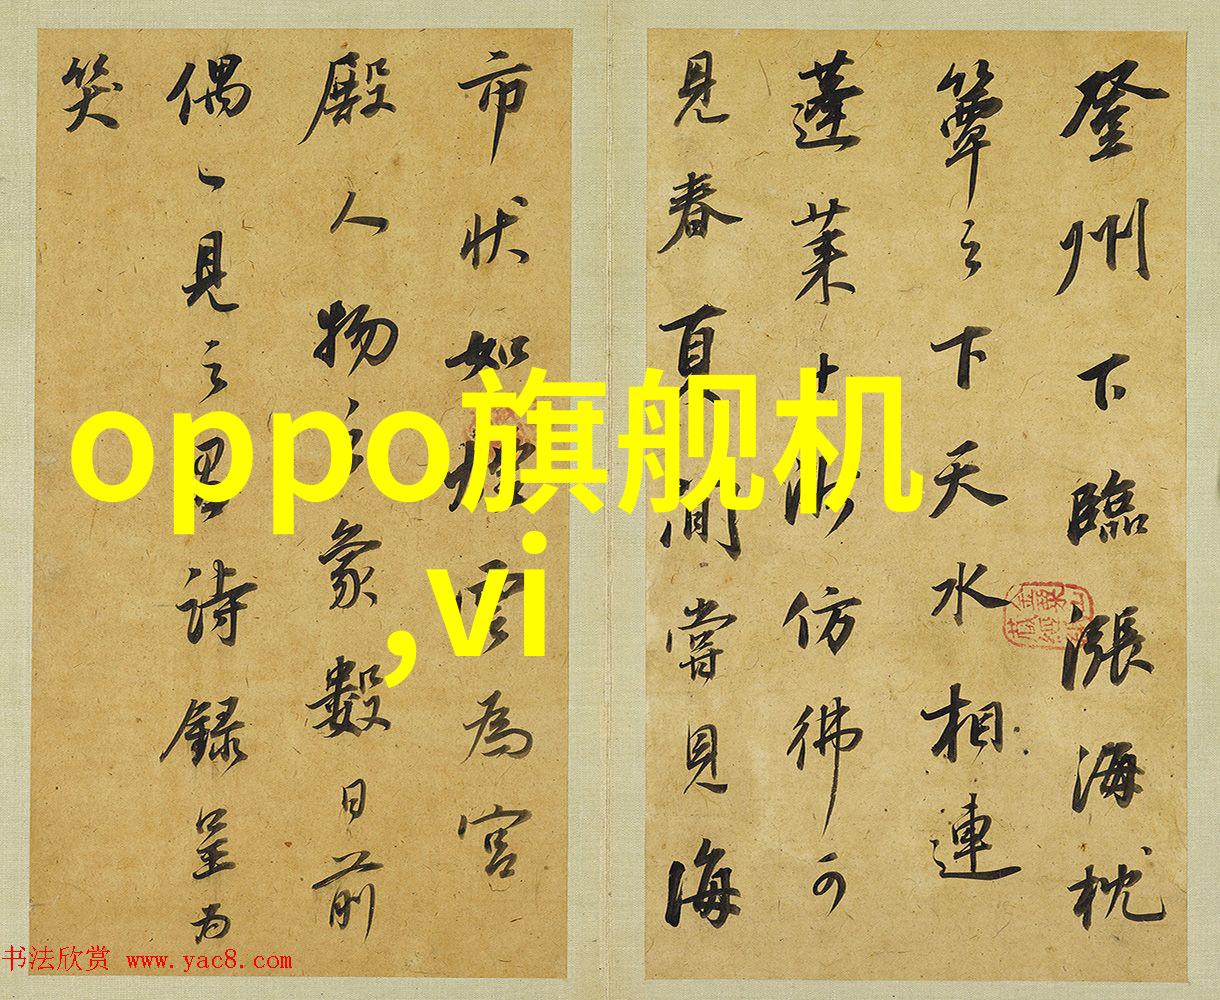 登州下臨漲海枕
簟之下天水相連
蓬萊十仿彿可
見春夏間嘗見海
市狀如煙雲為宮
殿人物之象數日前
偶一見之詩錄呈為
笑
oppo旗舰机
,vi
书法欣赏 www.yac8.com